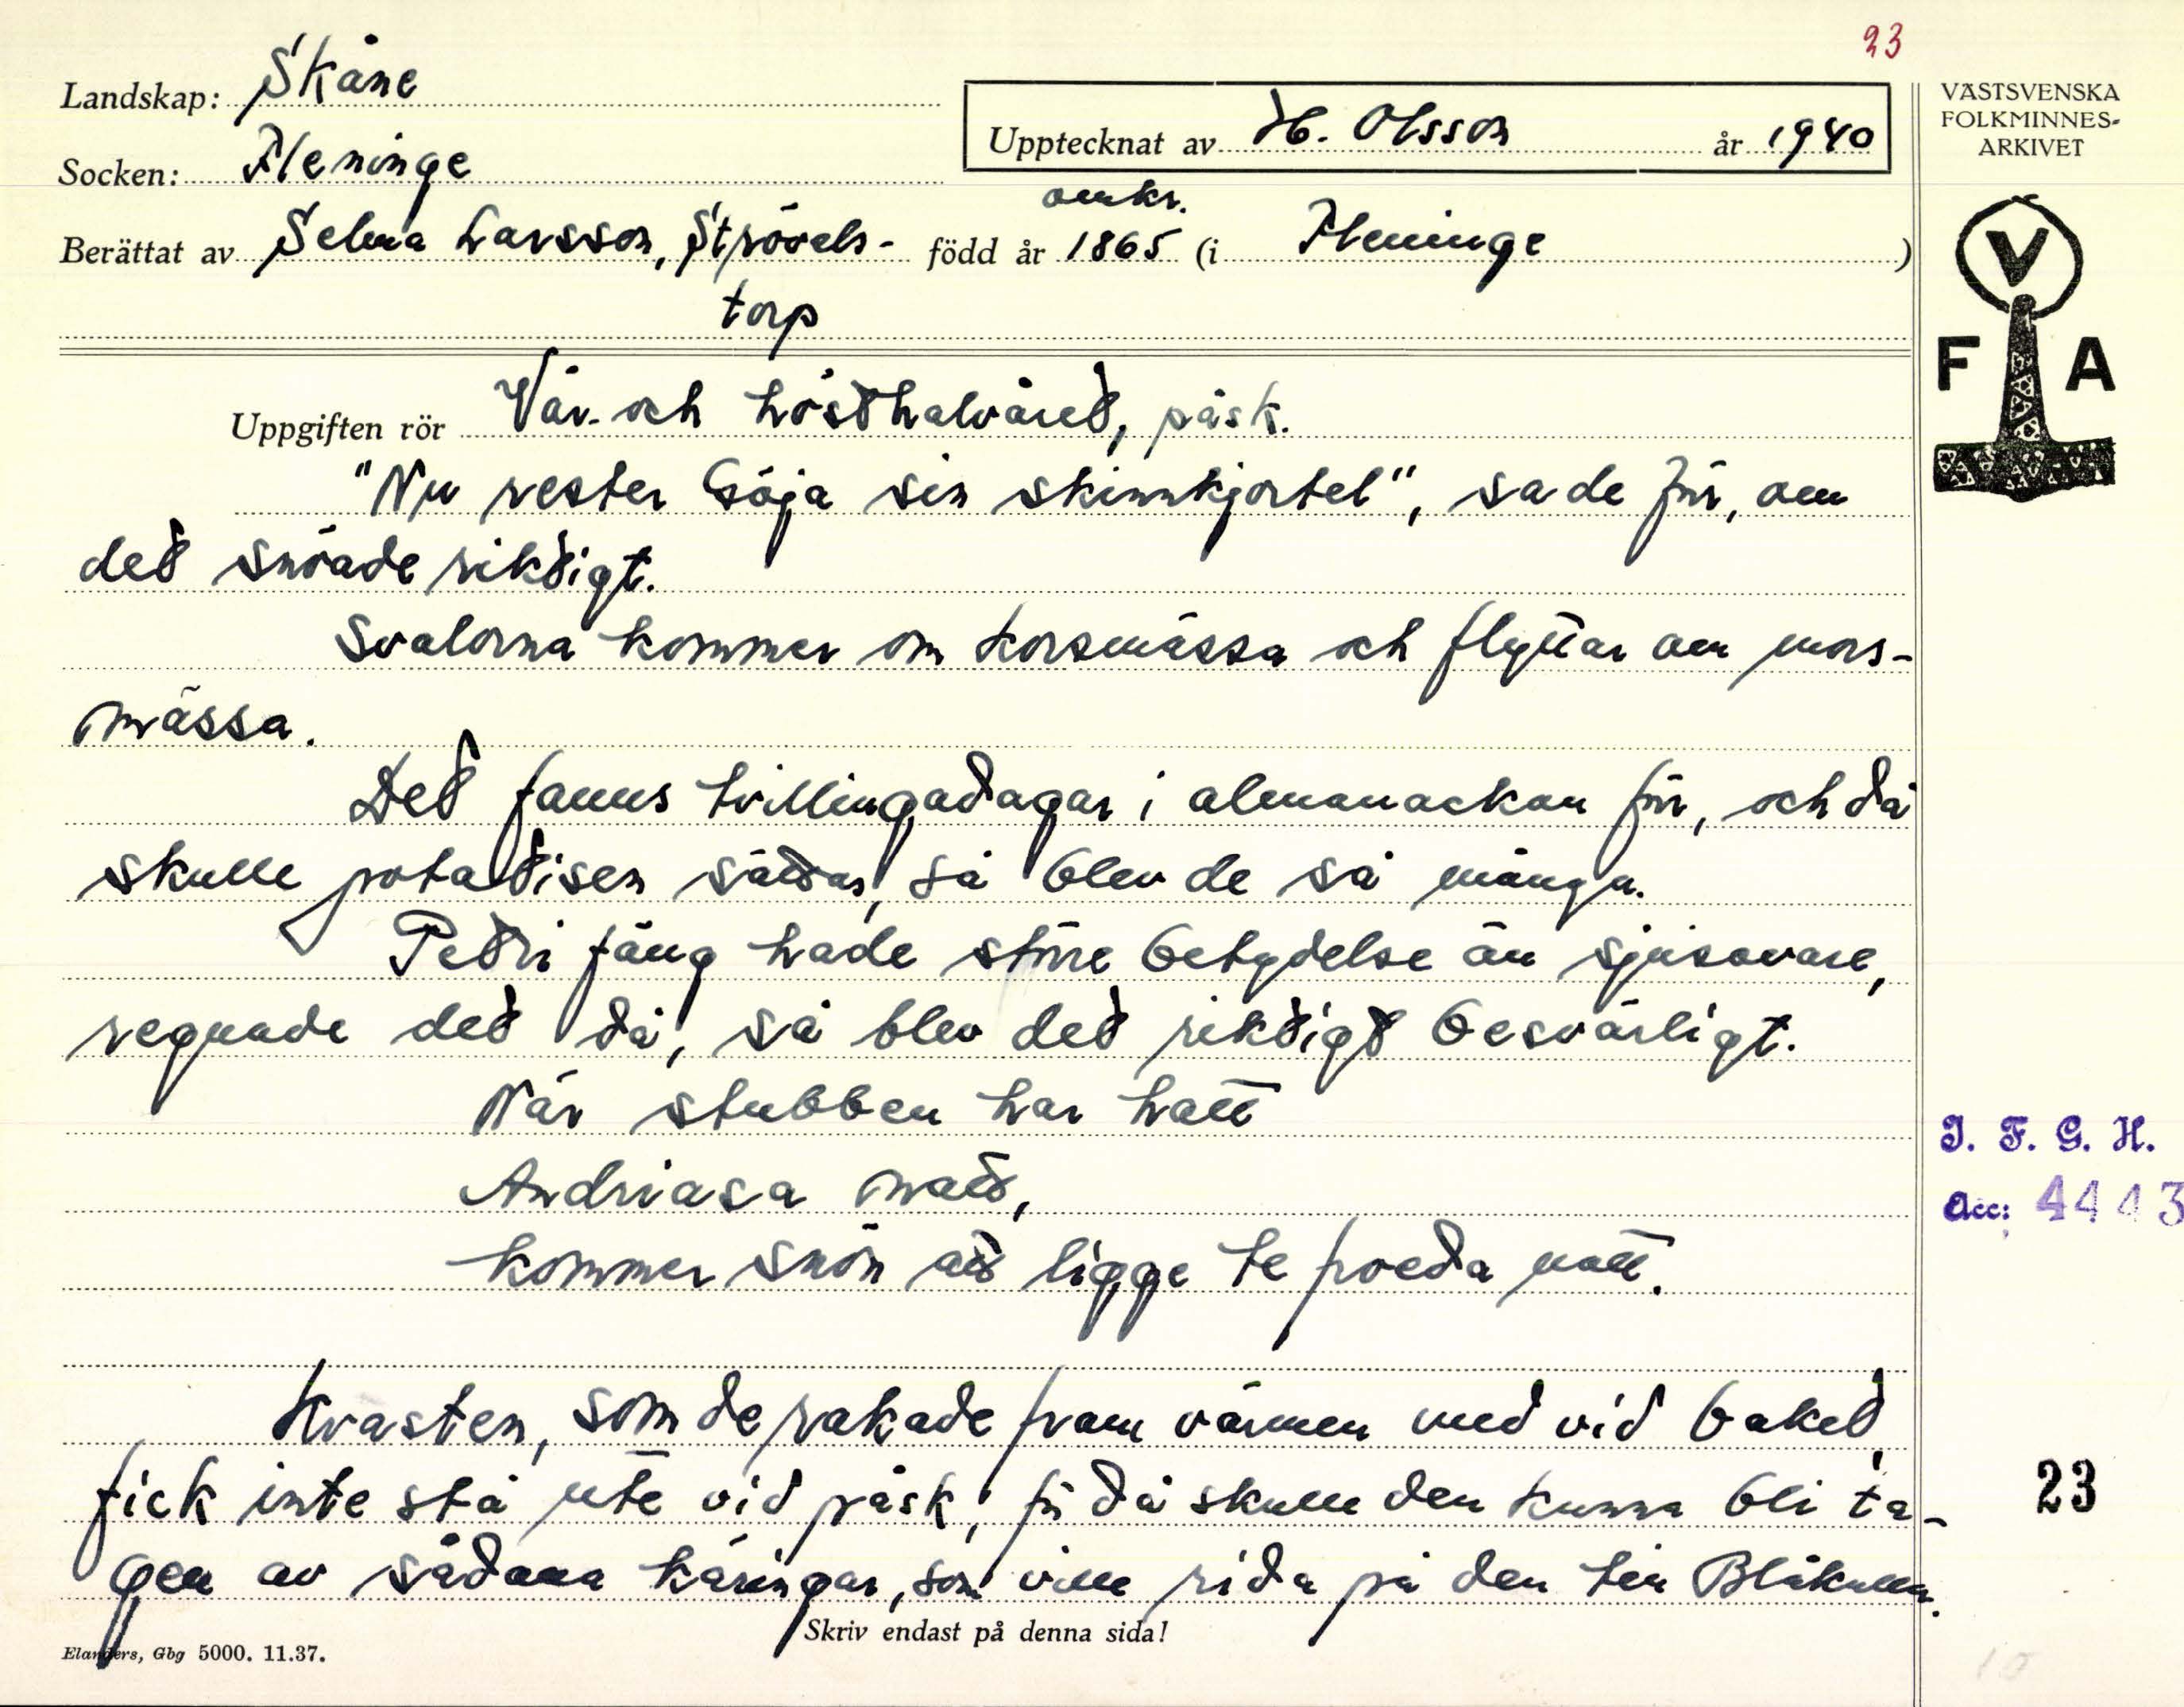 23
Landskap: Skåne
VÄSTSVENSKA
FOLKMINNES-
ARKIVET
Upptecknat av H. Olsson år 1940
Socken: Fleninge
omkr.
Berättat av Selma Larsson, Strövels- född år 1865 (i Fleninge )
torp
V
F A
Uppgiften rör Vår- och hösthalvåret, påsk.
"Nu rester Göja sin skinnkjortel", sade för, om
det snöade riktigt.
Svalorna kommer om korsmässa och flyttar om mors-
mässa.
Det fanns tvillingadagar i almanackan för, och då
skulle potatisen sättas, så blev de så många.
Petri fäng hade större betydelse än sjusovare,
regnade det då, så blev det riktigt besvärligt.
När stubben har hatt
Andriasa natt,
kommer snön att ligge te poeda natt.
I. F. G. H.
Acc: 4443
Kvasten, som de rakade fram värmen med vid baket,
fick inte stå ute vid påsk, för då skulle den kunna bli ta-
gen av sådana käringar, som ville rida på den till Blåkulla.
23
Skriv endast på denna sida!
Elanders, Gbg 5000. 11.37.
10